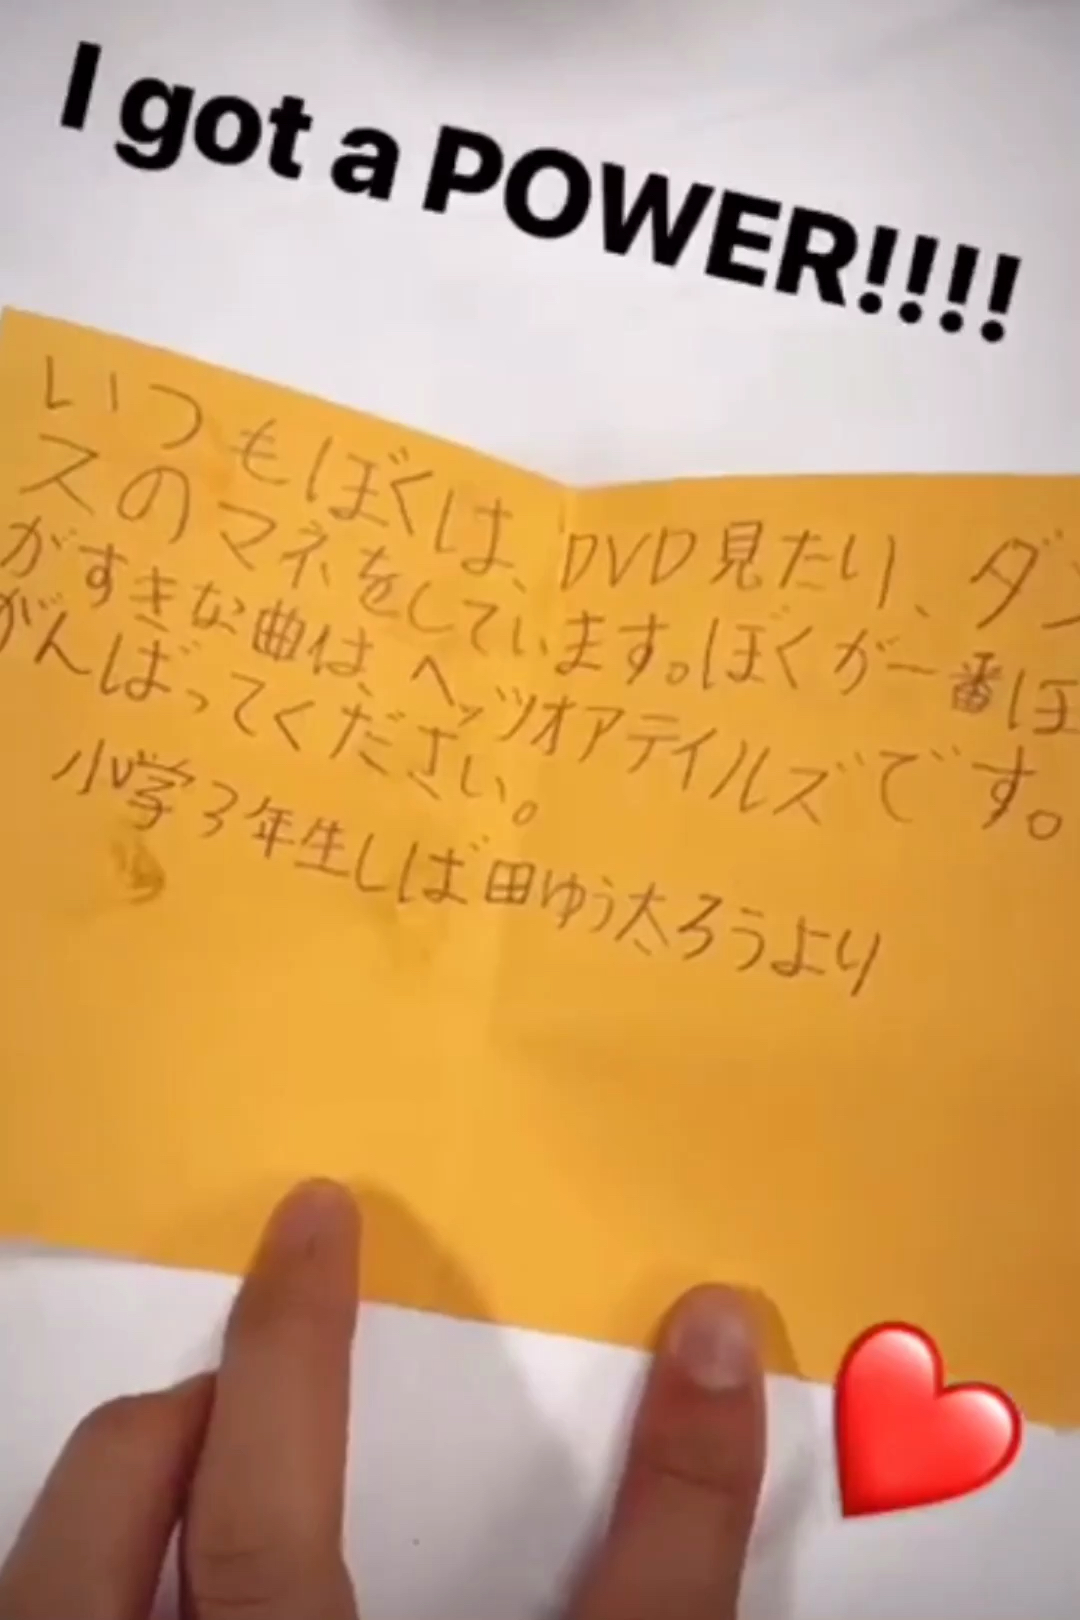 I got a POWER!!!!
いつもぼくは、DVD見たり、ダン
スのマネをしています。ぼくが一番ほ
がすきな曲は、ヘッツオアテイルズです。
がんばってください。
小学3年生しば田ゆう太ろうより